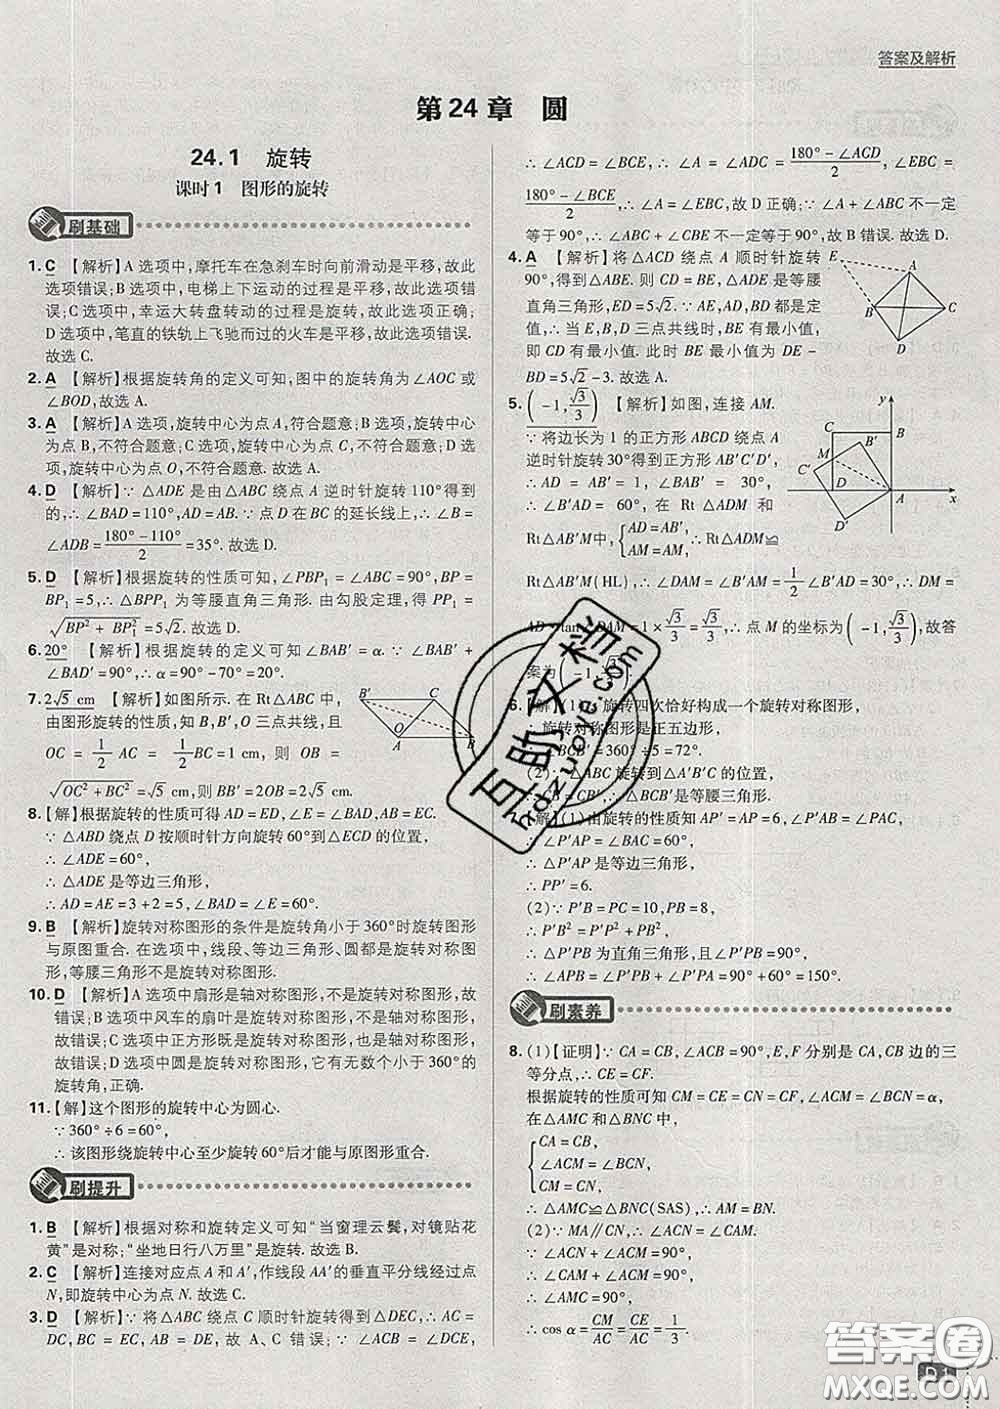 答案及解析
第24章 圆
24.1 旋转
课时1 图形的旋转
刷基础
1. C 【解析】A 选项中,摩托车在急刹车时向前滑动是平移,故此
选项错误;B 选项中,电梯上下运动的过程是平移,故此选项错
误;C 选项中,幸运大转盘转动的过程是旋转,故此选项正确;
D 选项中,笔直的铁轨上飞驰而过的火车是平移,故此选项错误.
故选 C.
2. A 【解析】根据旋转角的定义可知,图中的旋转角为∠AOC 或
∠BOD,故选 A.
3. A 【解析】A 选项,旋转中心为点 A,符合题意;B 选项,旋转中心
为点 B,不符合题意;C 选项,旋转中心为点 C,不符合题意;D 选
项,旋转中心为点 O,不符合题意. 故选 A.
4. D 【解析】∵ △ADE 是由△ABC 绕点 A 逆时针旋转 110°得到
的,∴ ∠BAD=110°,AD=AB. ∵ 点 D 在 BC 的延长线上,∴ ∠B=
∠ADB = (180°-110°)/2 = 35°. 故选 D.
5. D 【解析】根据旋转的性质可知,∠PBP₁=∠ABC=90°,BP=
BP₁=5,∴ △BPP₁ 为等腰直角三角形. 由勾股定理,得 PP₁=
√(BP²+BP₁²)=5√2. 故选 D.
6. 20° 【解析】根据旋转的定义可知∠BAB′=α. ∵ ∠BAB′+
∠B′AD=∠BAD=90°,∴ α=90°-70°=20°.
7. 2√5 cm 【解析】如图所示. 在 Rt△ABC 中,
由图形旋转的性质,知 B,B′,O 三点共线,且
OC = 1/2 AC = 1/2 BC = 1 cm, 则 OB =
√(OC²+BC²)=√5 cm,则 BB′=2OB=2√5 cm.
B′ C O A B
8.【解】根据旋转的性质可得 AD=ED,∠E=∠BAD,AB=EC.
∵ △ABD 绕点 D 按顺时针方向旋转 60°到△ECD 的位置,
∴ ∠ADE=60°,
∴ △ADE 是等边三角形,
∴ AD=AE=3+2=5,∠BAD=∠E=60°.
9. B 【解析】旋转对称图形的条件是旋转角小于 360°时旋转图形
与原图重合. 在选项中,线段、等边三角形、圆都是旋转对称图
形,等腰三角形不是旋转对称图形.
10. D 【解析】A 选项中扇形是轴对称图形,不是旋转对称图形,故
错误;B 选项中风车的扇叶是旋转对称图形,不是轴对称图形,
故错误;C 选项中正方形既是轴对称图形又是旋转对称图形,故
错误;D 选项中圆是旋转对称图形,它有无数个小于 360°的
旋转角,正确.
11.【解】这个图形的旋转中心为圆心.
∵ 360°÷6=60°,
∴ 该图形绕旋转中心至少旋转 60°后才能与原图形重合.
刷提升
1. B 【解析】根据对称和旋转定义可知“当窗理云鬓,对镜贴花
黄”是对称;“坐地日行八万里”是旋转. 故选 B.
2. C 【解析】连接对应点 A 和 A′,作线段 AA′的垂直平分线经过点
N,即旋转中心为点 N. 故选 C.
3. D 【解析】∵ 将△ABC 绕点 C 顺时针旋转得到△DEC,∴ AC=
DC,BC=EC,AB=DE,故 A、C 错误;∴ ∠ACB=∠DCE,
∴ ∠ACD=∠BCE,∴ ∠A=∠ADC=(180°-∠ACD)/2,∠EBC=
(180°-∠BCE)/2,∴ ∠A=∠EBC,故 D 正确;∵ ∠A+∠ABC 不一定
等于90°,∴ ∠ABC+∠CBE 不一定等于90°,故 B 错误. 故选 D.
4. A 【解析】将△ACD 绕点 A 顺时针旋转
90°,得到△ABE. 则 CD=BE,△ADE 是等腰
直角三角形,ED=5√2. ∵ AE,AD,BD 都是定
值,∴ 当 E,B,D 三点共线时,BE 有最小值,
即 CD 有最小值. 此时 BE 最小值为 DE-
BD=5√2-3. 故选 A.
E A B C D
5. (-1,√3/3) 【解析】如图,连接 AM.
∵ 将边长为 1 的正方形 ABCD 绕点 A
逆时针旋转30°得到正方形 AB′C′D′,
∴ AD = AB′ = 1, ∠BAB′ = 30°,
∴ ∠B′AD = 60°, 在 Rt △ADM 和
Rt△AB′M中,{AD=AB′, AM=AM, ∴ Rt△ADM≌
Rt△AB′M(HL),∴ ∠DAM=∠B′AM=1/2∠B′AD=30°,∴ DM=
AD·tan∠DAM=1×√3/3=√3/3,∴ 点 M 的坐标为(-1,√3/3),故答
案为(-1,√3/3).
y C B B′ M C′ D A x D′
6.【解】(1)∵ 旋转四次恰好构成一个旋转对称图形,
∴ 旋转对称图形是正五边形,
∴ ∠BCB′=360°÷5=72°.
(2)∵ △ABC 旋转到△A′B′C 的位置,
∴ BC=B′C,∴ △BCB′是等腰三角形.
7.【解】(1)由旋转的性质知 AP′=AP=6,∠P′AB=∠PAC,
∴ ∠P′AP=∠BAC=60°,
∴ △P′AP 是等边三角形,
∴ PP′=6.
(2)∵ P′B=PC=10,PB=8,
∴ P′B²=P′P²+PB²,
∴ △P′PB 为直角三角形,且∠P′PB=90°,
∴ ∠APB=∠P′PB+∠P′PA=90°+60°=150°.
刷素养
8. (1)【证明】∵ CA=CB,∠ACB=90°,E,F 分别是 CA,CB 边的三
等分点,∴ CE=CF.
根据旋转的性质可知 CM=CE=CN=CF,∠ACM=∠BCN=α,
在△AMC 和△BNC 中,
{CA=CB,
∠ACM=∠BCN,
CM=CN,
∴ △AMC≌△BNC(SAS),∴ AM=BN.
(2)∵ MA∥CN,∴ ∠ACN=∠CAM.
∵ ∠ACN+∠ACM=90°,
∴ ∠CAM+∠ACM=90°,
∴ ∠AMC=90°,
∴ cos α=CM/AC=CE/AC=1/3.
互助文档
hdzuoye.com
答案圈
MXQE.COM
D1